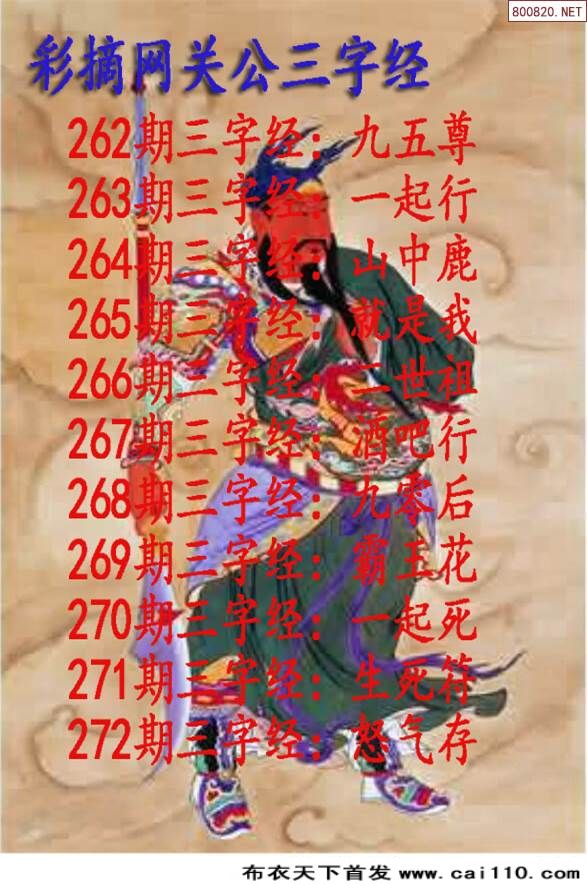 800820.NET
彩摘网关公三字经
262期三字经：九五尊
263期三字经：一起行
264期三字经：山中鹿
265期三字经：就是我
266期三字经：二世祖
267期三字经：酒吧行
268期三字经：九零后
269期三字经：霸王花
270期三字经：一起死
271期三字经：生死符
272期三字经：怒气存
布衣天下首发 www.cai110.com